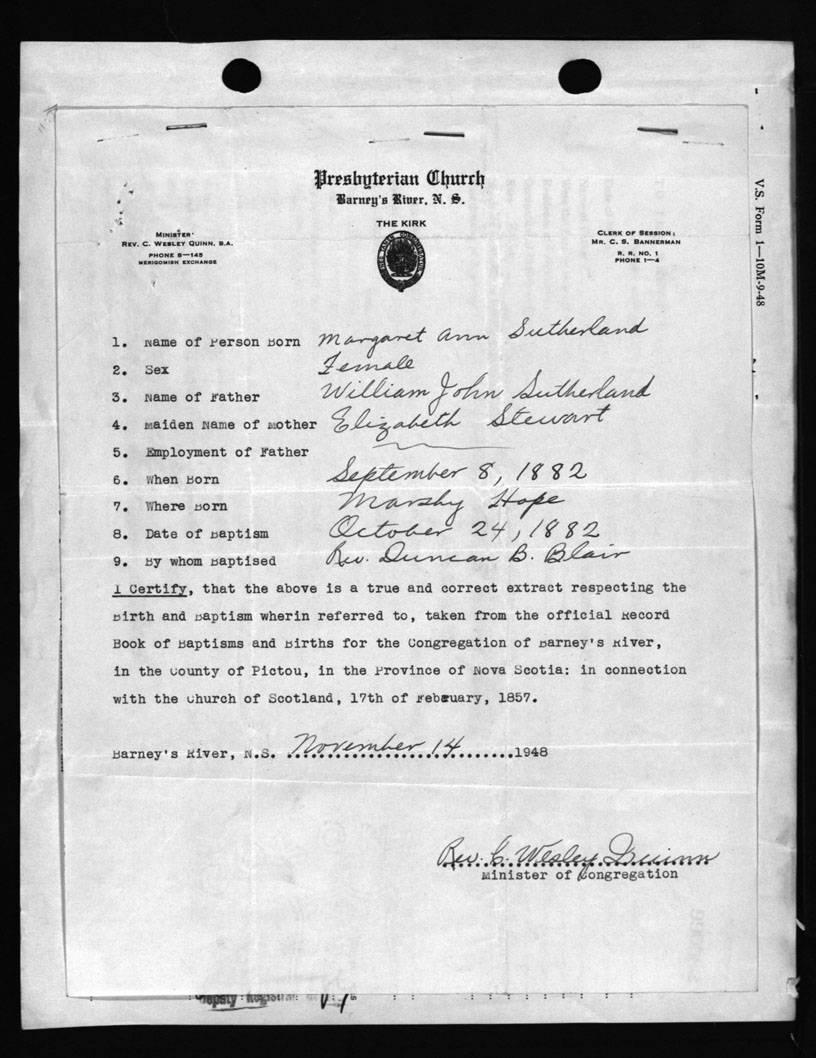 Presbyterian Church
Barney's River, N. S.
THE KIRK
MINISTER:
REV. C. WESLEY QUINN, B.A.
PHONE 8—145
MERIGOMISH EXCHANGE
CLERK OF SESSION:
MR. C. S. BANNERMAN
R. R. NO. 1
PHONE 1—4
V.S. Form 1—10M-9-48
1. Name of Person Born Margaret Ann Sutherland
2. Sex Female
3. Name of Father William John Sutherland
4. Maiden Name of Mother Elizabeth Stewart
5. Employment of Father
6. When Born September 8, 1882
7. Where Born Marshy Hope
8. Date of Baptism October 24, 1882
9. By whom Baptised Rev. Duncan B. Blair
I Certify, that the above is a true and correct extract respecting the
Birth and Baptism wherin referred to, taken from the official Record
Book of Baptisms and Births for the Congregation of Barney's River,
in the County of Pictou, in the Province of Nova Scotia: in connection
with the Church of Scotland, 17th of February, 1857.
Barney's River, N.S. November 14 1948
Rev. C. Wesley Quinn
Minister of Congregation
Deputy Registrar